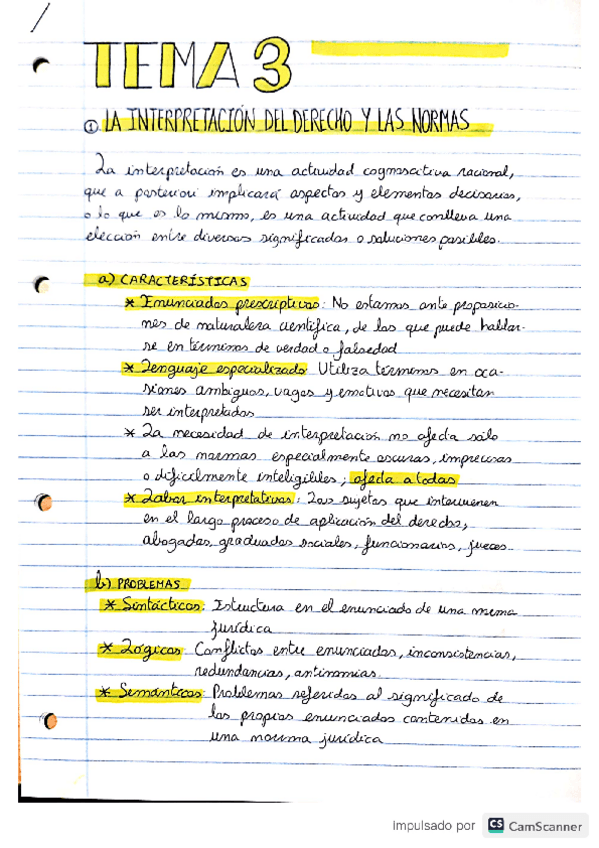 TEMA 3
① LA INTERPRETACIÓN DEL DERECHO Y LAS NORMAS
La interpretación es una actividad cognoscitiva racional,
que a posteriori implicará aspectos y elementos decisorios,
o lo que es lo mismo, es una actividad que conlleva una
elección entre diversos significados o soluciones posibles.
a) CARACTERÍSTICAS
* Enunciados prescriptivos: No estamos ante proposicio-
nes de naturaleza científica, de las que puede hablar-
se en términos de verdad o falsedad
* Lenguaje especializado Utiliza términos en oca-
siones ambiguos, vagos y emotivos que necesitan
ser interpretados
* La necesidad de interpretación no afecta sólo
a las normas especialmente oscuras, imprecisas
o difícilmente inteligibles; afecta a todas
* Labor interpretativas: Los sujetos que intervienen
en el largo proceso de aplicación del derecho,
abogados, graduados sociales, funcionarios, jueces
b) PROBLEMAS
* Sintácticos: Estructura en el enunciado de una norma
jurídica
* Lógicos: Conflictos entre enunciados, inconsistencias,
redundancias, antinomias.
* Semánticos: Problemas referidos al significado de
los propios enunciados contenidos en
una norma jurídica
Impulsado por CS CamScanner